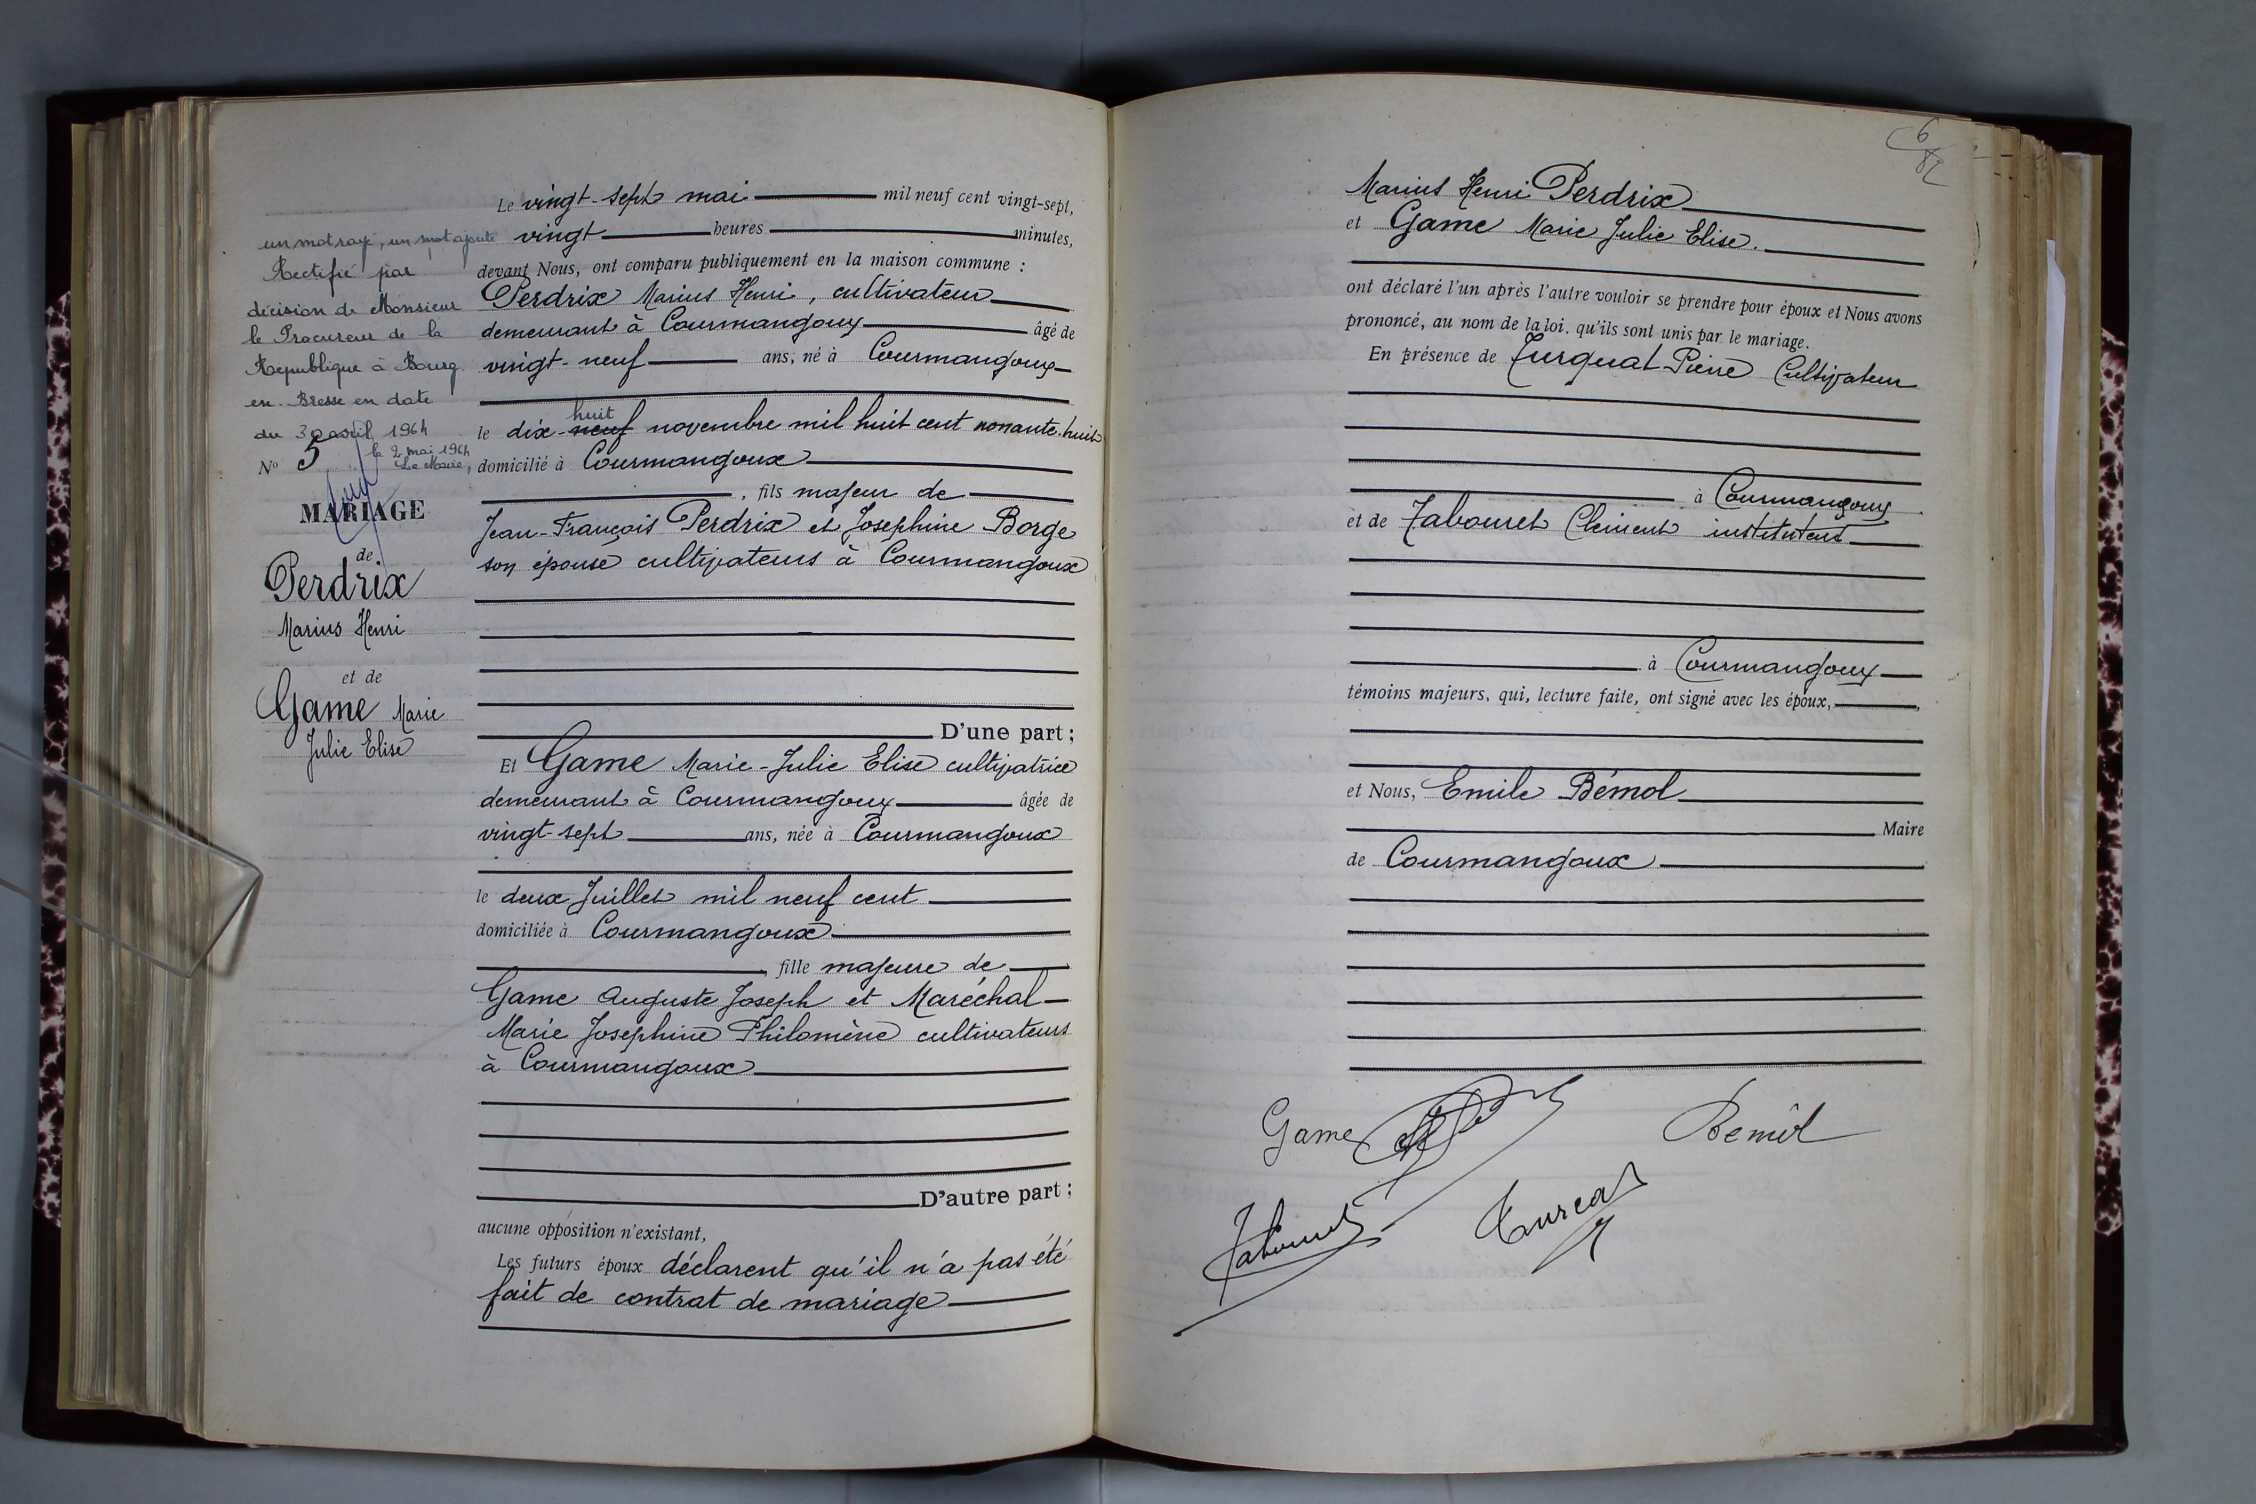 un mot rayé, un mot ajouté
Rectifié par
décision de Monsieur
le Procureur de la
République à Bourg
en Bresse en date
du 30 avril 1964
le 2 mai 1964
Le Maire,
N° 5
MARIAGE
de
Perdrix
Marius Henri
et de
Game Marie
Julie Elise
Le vingt-sept mai mil neuf cent vingt-sept,
vingt heures minutes,
devant Nous, ont comparu publiquement en la maison commune :
Perdrix Marius Henri, cultivateur
demeurant à Courmangoux âgé de
vingt-neuf ans, né à Courmangoux
huit
le dix-neuf novembre mil huit cent nonante-huit
domicilié à Courmangoux
, fils majeur de
Jean-François Perdrix et Josephine Borge
son épouse cultivateurs à Courmangoux
D'une part ;
Et Game Marie-Julie Elise cultivatrice
demeurant à Courmangoux âgée de
vingt-sept ans, née à Courmangoux
le deux Juillet mil neuf cent
domiciliée à Courmangoux
, fille majeure de
Game Auguste Joseph et Maréchal
Marie Josephine Philomène cultivateurs
à Courmangoux
D'autre part ;
aucune opposition n'existant,
Les futurs époux déclarent qu'il n'a pas été
fait de contrat de mariage
6
Marius Henri Perdrix
et Game Marie Julie Elise.
ont déclaré l'un après l'autre vouloir se prendre pour époux et Nous avons
prononcé, au nom de la loi. qu'ils sont unis par le mariage.
En présence de Turquat Pierre Cultivateur
à Courmangoux
et de Tabouret Clément instituteur
à Courmangoux
témoins majeurs, qui, lecture faite, ont signé avec les époux,
et Nous, Emile Bémol
Maire
de Courmangoux
Game
Bemol
Tabouret